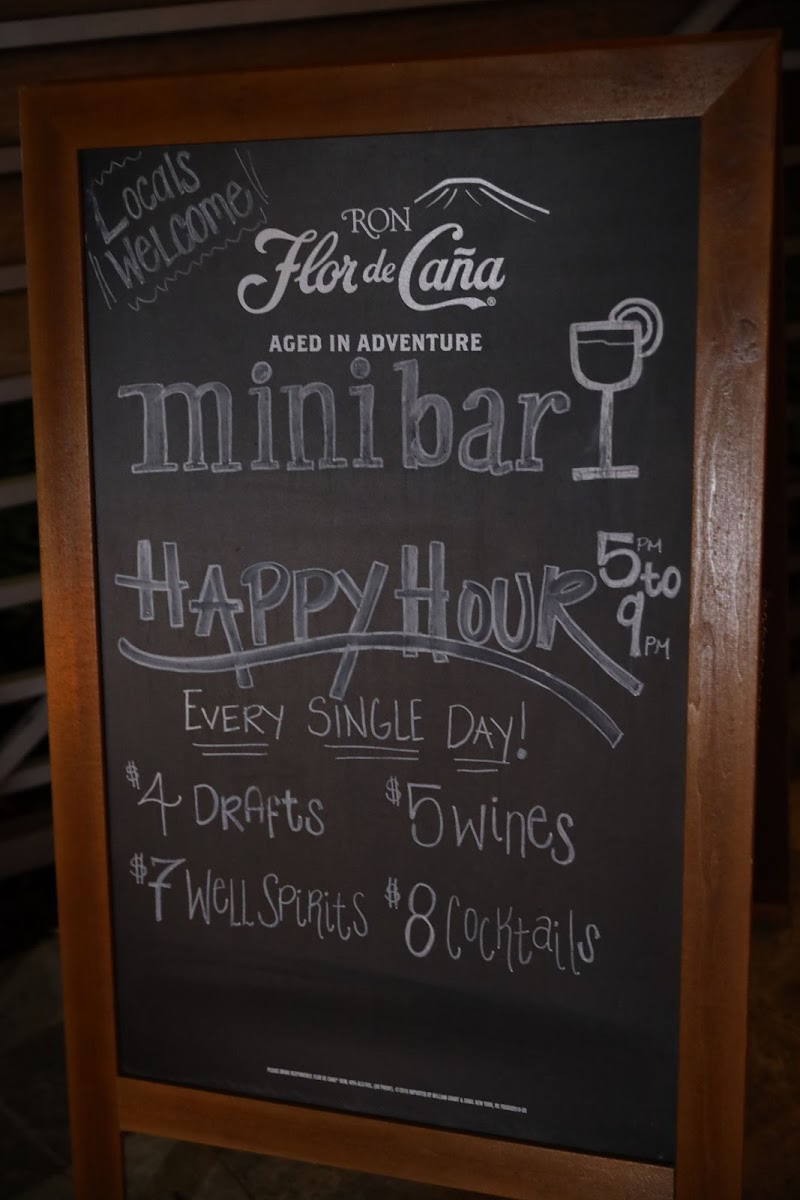 Locals
Welcome
RON
Flor de Caña®
AGED IN ADVENTURE
minibar
HAPPY HOUR 5PM to 9PM
EVERY SINGLE DAY!
$4 DRAfts $5 wines
$7 Well Spirits $8 Cocktails